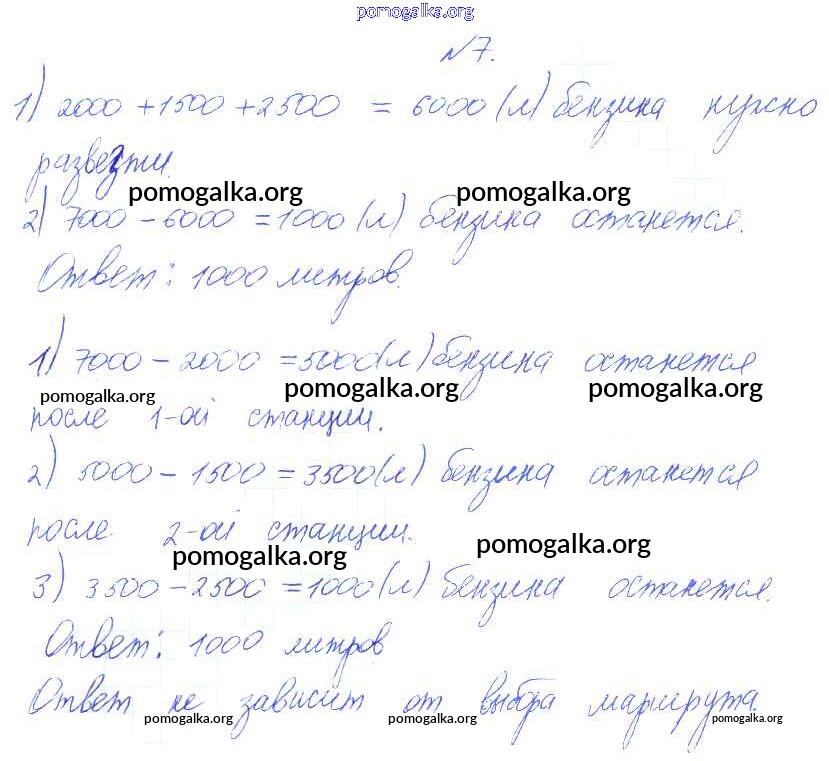 pomogalka.org
№7.
1) 2000 + 1500 + 2500 = 6000 (л) бензина нужно
развезти.
pomogalka.org pomogalka.org
2) 7000 - 6000 = 1000 (л) бензина останется.
Ответ: 1000 литров.
1) 7000 - 2000 = 5000 (л) бензина останется
pomogalka.org pomogalka.org pomogalka.org
после 1-ой станции.
2) 5000 - 1500 = 3500 (л) бензина останется
после 2-ой станции.
pomogalka.org pomogalka.org
3) 3500 - 2500 = 1000 (л) бензина останется.
Ответ: 1000 литров
Ответ не зависит от выбра маршрута.
pomogalka.org pomogalka.org pomogalka.org pomogalka.org